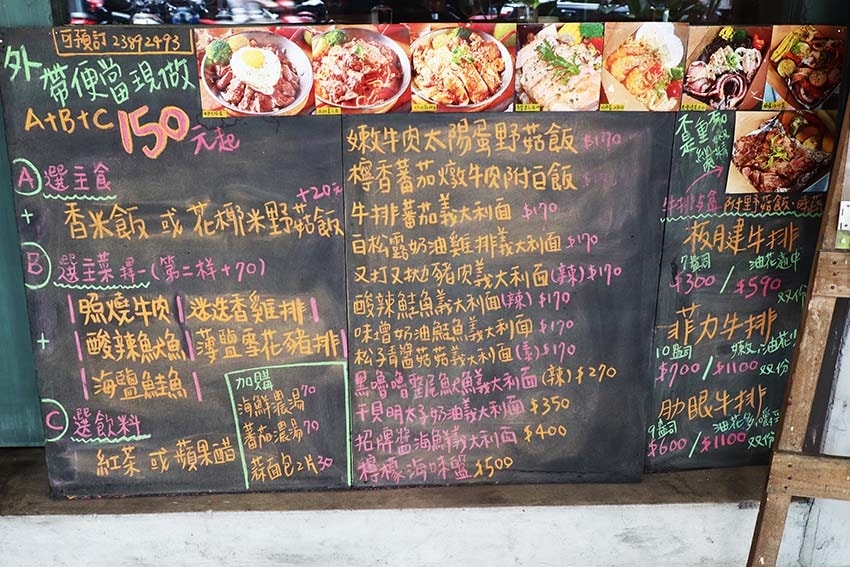 可預訂 23892493
外帶便當現做
A+B+C 150元起
A 選主食
+20元
+
香米飯 或 花椰米野菇飯
B 選主菜擇一(第二樣+70)
照燒牛肉 迷迭香雞排
+
酸辣魷魚 薄鹽雪花豬排
海鹽鮭魚
C 選飲料
紅茶 或 蘋果醋
加購
海鮮濃湯70
蕃茄濃湯70
蒜麵包2片30
嫩牛肉太陽蛋野菇飯 $170
檸香蕃茄燉牛肉附白飯 $170
牛排蕃茄義大利面 $170
白松露奶油雞排義大利面 $170
又打又拗豬肉義大利面(辣) $170
酸辣鮭魚義大利面(辣) $170
味增奶油鮭魚義大利面 $170
松子青醬菇菇義大利面(素) $170
黑嚕嚕整尾魷魚義大利面(辣) $270
干貝明太子奶油義大利面 $350
招牌醬海鮮義大利面 $400
檸檬海味盤 $500
牛排
附野菇飯
板腱牛排
7盎司 油花適中
$300 / $590 双份
菲力牛排
10盎司 嫩,油花少
$700 / $1100 双份
肋眼牛排
9盎司 油花多
$600 / $1100 双份